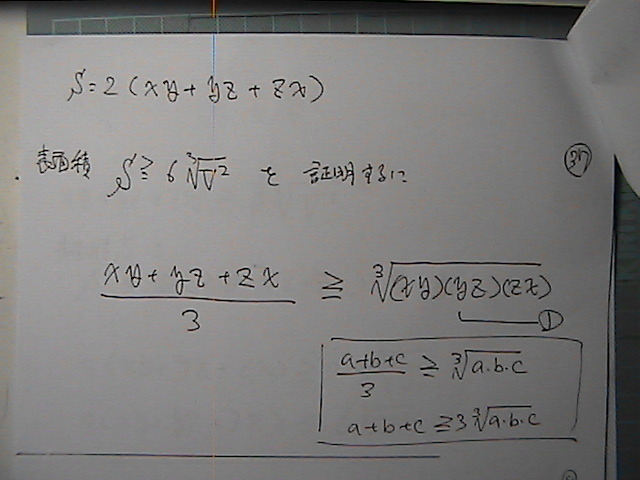 S=2(xy+yz+zx)
表面積 S≧6∛V² を 証明するに
37
(xy+yz+zx)/3 ≧ ∛(xy)(yz)(zx)
①
(a+b+c)/3 ≧ ∛a・b・c
a+b+c≧3∛a・b・c